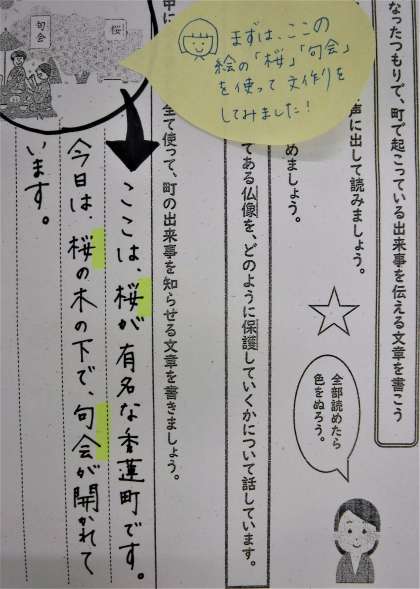 なったつもりで、町で起こっている出来事を伝える文章を書こう
声に出して読みましょう。
めましょう。
全部読めたら
色をぬろう。
てある仏像を、どのように保護していくかについて話しています。
まずは、ここの
絵の「桜」「句会」
を使って文作りを
してみました！
全て使って、町の出来事を知らせる文章を書きましょう。
中に
桜
句会
ここは、桜が有名な香蓮町です。
今日は、桜の木の下で、句会が開かれて
います。